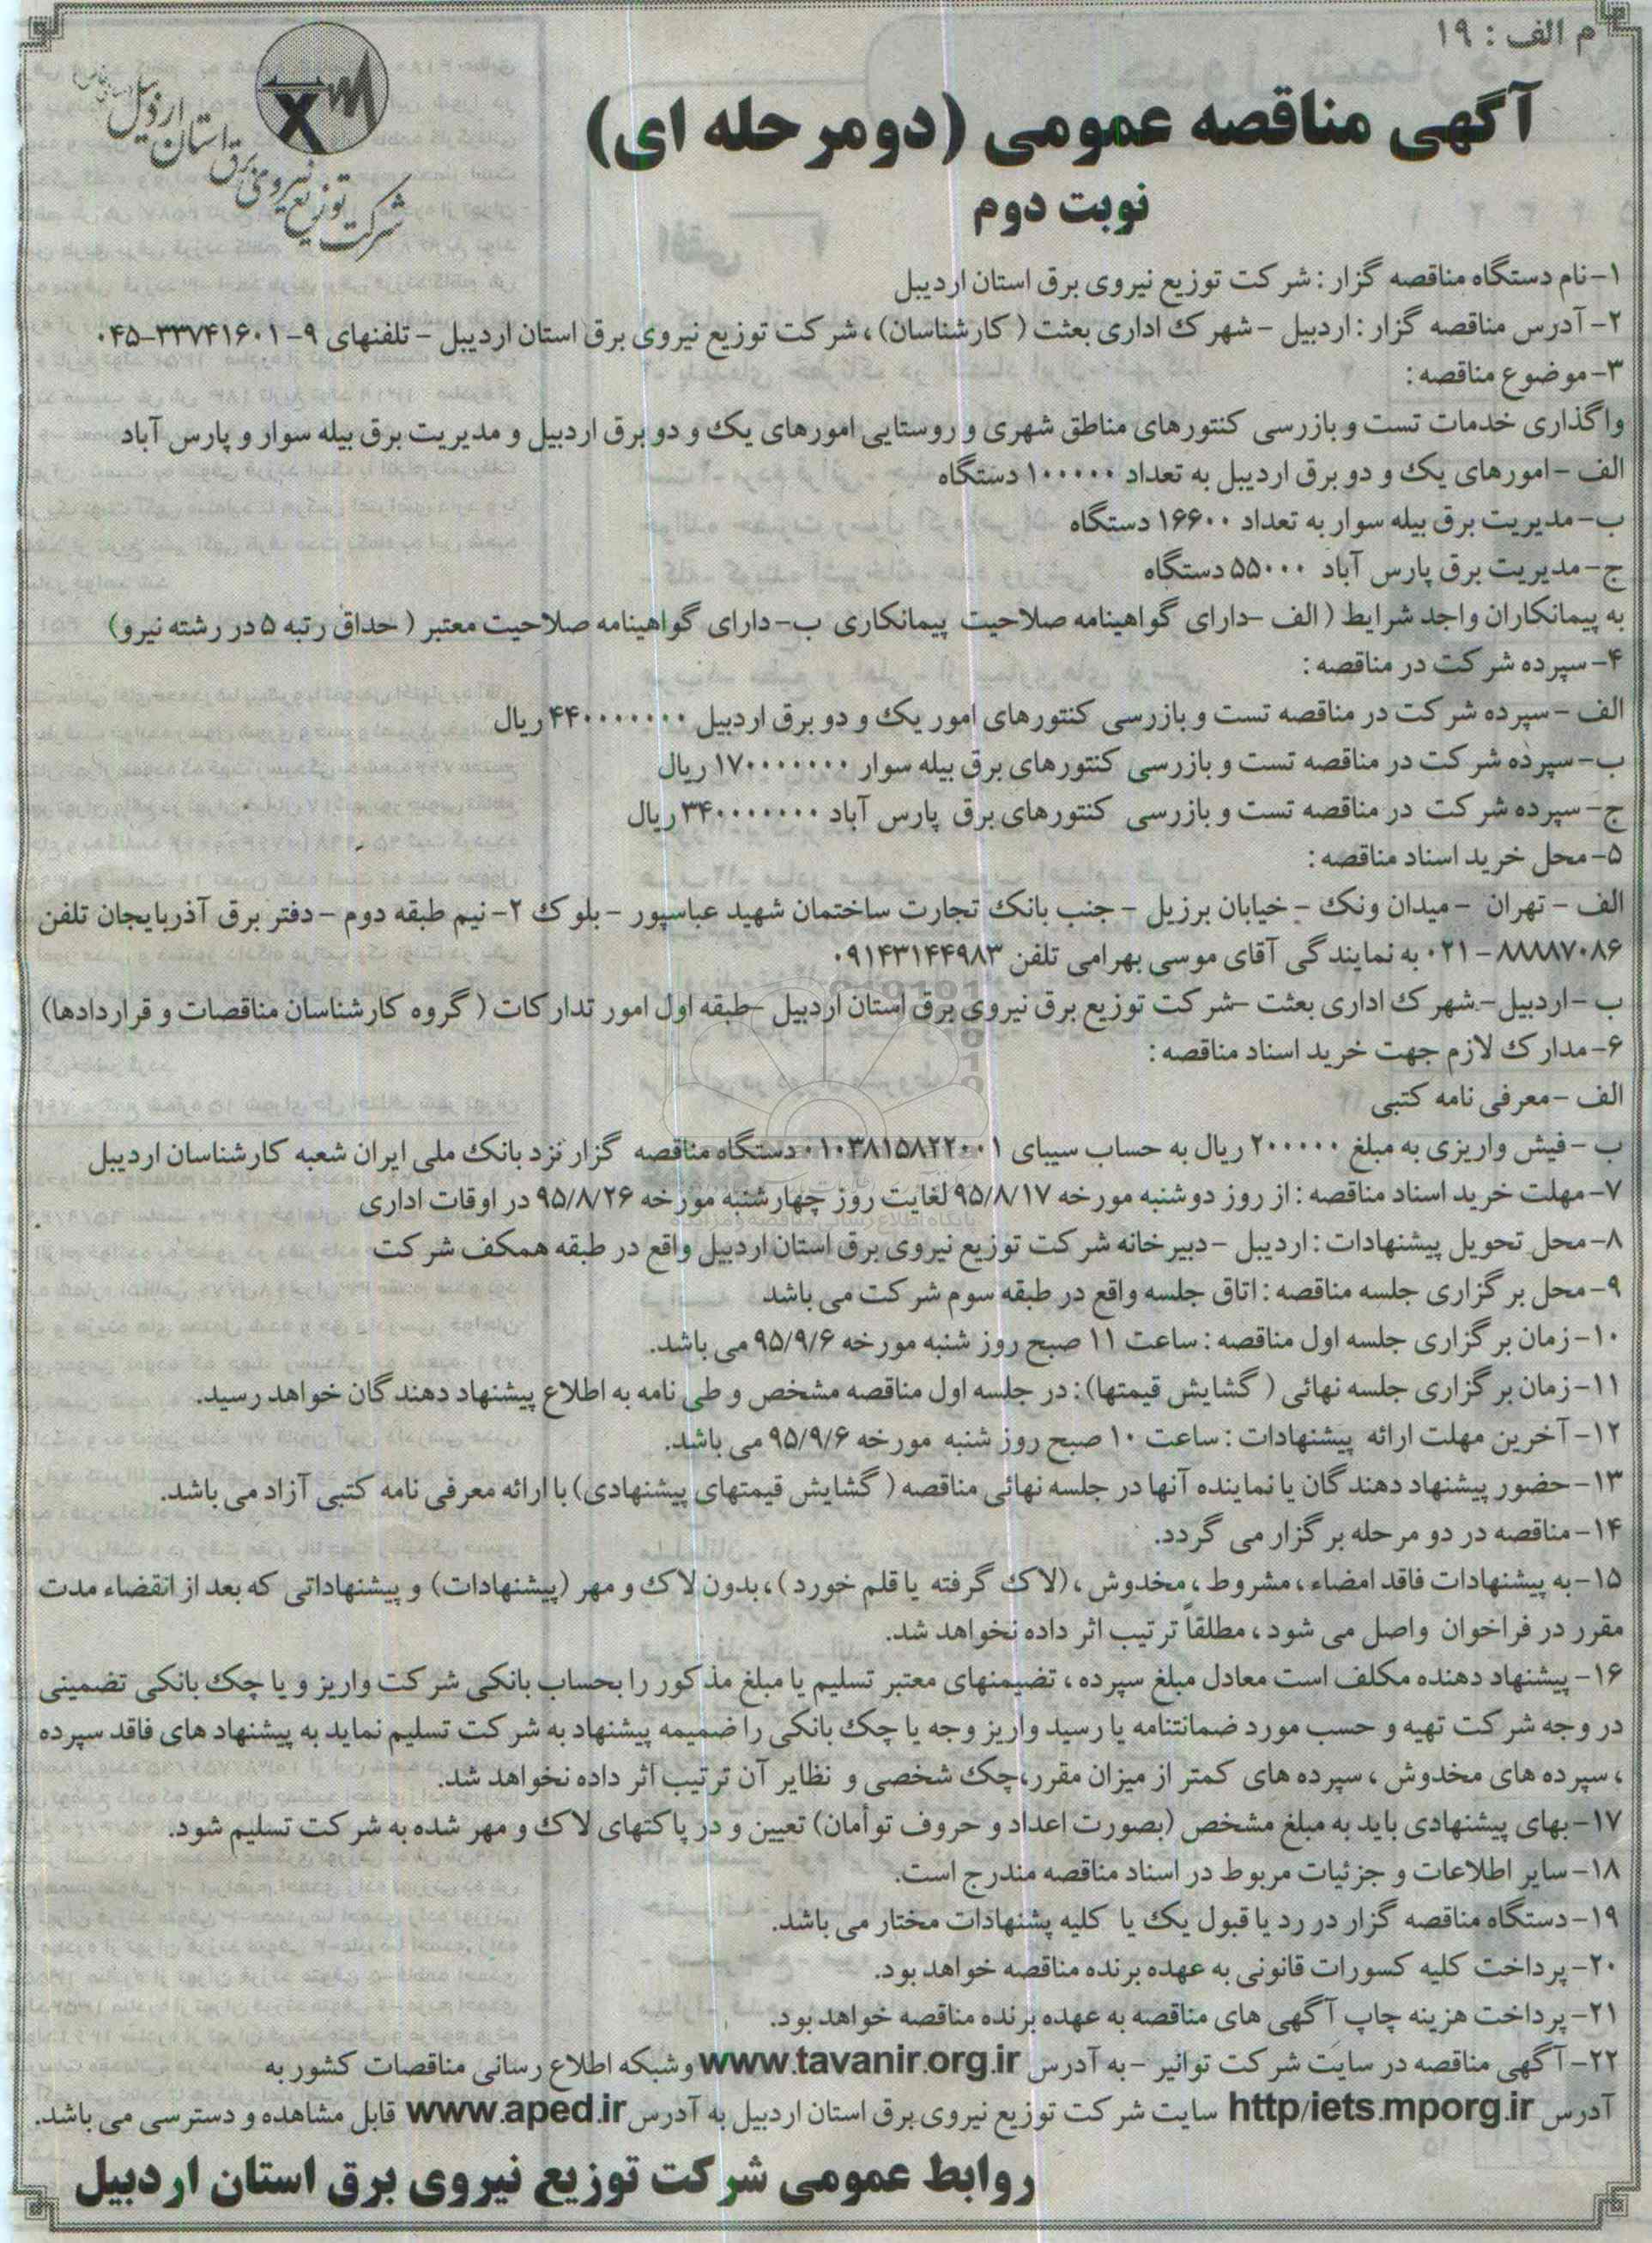 م الف : ۱۹
آگهی مناقصه عمومی (دومرحله ای)
نوبت دوم
شرکت توزیع نیروی برق استان اردبیل
۱-نام دستگاه مناقصه گزار : شرکت توزیع نیروی برق استان اردبیل
۲- آدرس مناقصه گزار : اردبیل - شهرک اداری بعثت ( کارشناسان) ، شرکت توزیع نیروی برق استان اردبیل - تلفنهای ۹-۳۳۷۴۱۶۰۱-۰۴۵
۳-موضوع مناقصه :
واگذاری خدمات تست و بازرسی کنتورهای مناطق شهری و روستایی امورهای یک و دو برق اردبیل و مدیریت برق بیله سوار و پارس آباد
الف -امورهای یک و دو برق اردبیل به تعداد ۱۰۰۰۰۰ دستگاه
ب-مدیریت برق بیله سوار به تعداد ۱۶۶۰۰ دستگاه
ج-مدیریت برق پارس آباد ۵۵۰۰۰ دستگاه
به پیمانکاران واجد شرایط ( الف -دارای گواهینامه صلاحیت پیمانکاری ب-دارای گواهینامه صلاحیت معتبر ( حداق رتبه ۵ در رشته نیرو)
۴-سپرده شرکت در مناقصه :
الف -سپرده شرکت در مناقصه تست و بازرسی کنتورهای امور یک و دو برق اردبیل ۴۴۰۰۰۰۰۰۰ ریال
ب-سپرده شرکت در مناقصه تست و بازرسی کنتورهای برق بیله سوار ۱۷۰۰۰۰۰۰۰ ریال
ج-سپرده شرکت در مناقصه تست و بازرسی کنتورهای برق پارس آباد ۳۴۰۰۰۰۰۰۰ ریال
۵-محل خرید اسناد مناقصه :
الف - تهران -میدان ونک - خیابان برزیل - جنب بانک تجارت ساختمان شهید عباسپور - بلوک ۲-نیم طبقه دوم -دفتر برق آذربایجان تلفن
۸۸۸۸۷۰۸۶-۰۲۱ به نمایندگی آقای موسی بهرامی تلفن ۰۹۱۴۳۱۴۴۹۸۳
ب -اردبیل -شهرک اداری بعثت -شرکت توزیع برق نیروی برق استان اردبیل -طبقه اول امور تدارکات ( گروه کارشناسان مناقصات و قراردادها)
۶-مدارک لازم جهت خرید اسناد مناقصه :
الف -معرفی نامه کتبی
ب -فیش واریزی به مبلغ ۲۰۰۰۰۰ ریال به حساب سیبای ۰۱۰۳۸۱۵۸۲۲۰۰۱ دستگاه مناقصه گزار نزد بانک ملی ایران شعبه کارشناسان اردبیل
۷-مهلت خرید اسناد مناقصه : از روز دوشنبه مورخه ۹۵/۸/۱۷ لغایت روز چهارشنبه مورخه ۹۵/۸/۲۶ در اوقات اداری
۸-محل تحویل پیشنهادات : اردبیل -دبیرخانه شرکت توزیع نیروی برق استان اردبیل واقع در طبقه همکف شرکت
۹-محل برگزاری جلسه مناقصه : اتاق جلسه واقع در طبقه سوم شرکت می باشد
۱۰-زمان برگزاری جلسه اول مناقصه : ساعت ۱۱ صبح روز شنبه مورخه ۹۵/۹/۶ می باشد.
۱۱-زمان برگزاری جلسه نهائی ( گشایش قیمتها): در جلسه اول مناقصه مشخص و طی نامه به اطلاع پیشنهاد دهندگان خواهد رسید.
۱۲-آخرین مهلت ارائه پیشنهادات : ساعت ۱۰ صبح روز شنبه مورخه ۹۵/۹/۶ می باشد.
۱۳-حضور پیشنهاد دهندگان یا نماینده آنها در جلسه نهائی مناقصه ( گشایش قیمتهای پیشنهادی) با ارائه معرفی نامه کتبی آزاد می باشد.
۱۴-مناقصه در دو مرحله برگزار می گردد.
۱۵-به پیشنهادات فاقد امضاء ، مشروط ، مخدوش ، (لاک گرفته یا قلم خورد ) ، بدون لاک و مهر (پیشنهادات) و پیشنهاداتی که بعد از انقضاء مدت
مقرر در فراخوان واصل می شود ، مطلقاً ترتیب اثر داده نخواهد شد.
۱۶-پیشنهاد دهنده مکلف است معادل مبلغ سپرده ، تضیمنهای معتبر تسلیم یا مبلغ مذکور را بحساب بانکی شرکت واریز و یا چک بانکی تضمینی
در وجه شرکت تهیه و حسب مورد ضمانتنامه یا رسید واریز وجه یا چک بانکی را ضمیمه پیشنهاد به شرکت تسلیم نماید به پیشنهاد های فاقد سپرده
، سپرده های مخدوش ، سپرده های کمتر از میزان مقرر،چک شخصی و نظایر آن ترتیب اثر داده نخواهد شد.
۱۷-بهای پیشنهادی باید به مبلغ مشخص (بصورت اعداد و حروف توأمان) تعیین و در پاکتهای لاک و مهر شده به شرکت تسلیم شود.
۱۸-سایر اطلاعات و جزئیات مربوط در اسناد مناقصه مندرج است.
۱۹-دستگاه مناقصه گزار در رد یا قبول یک یا کلیه پشنهادات مختار می باشد.
۲۰-پرداخت کلیه کسورات قانونی به عهده برنده مناقصه خواهد بود.
۲۱-پرداخت هزینه چاپ آگهی های مناقصه به عهده برنده مناقصه خواهد بود.
۲۲-آگهی مناقصه در سایت شرکت توانیر -به آدرس www.tavanir.org.ir وشبکه اطلاع رسانی مناقصات کشور به
آدرس http/iets.mporg.ir سایت شرکت توزیع نیروی برق استان اردبیل به آدرس www.aped.ir قابل مشاهده و دسترسی می باشد.
روابط عمومی شرکت توزیع نیروی برق استان اردبیل